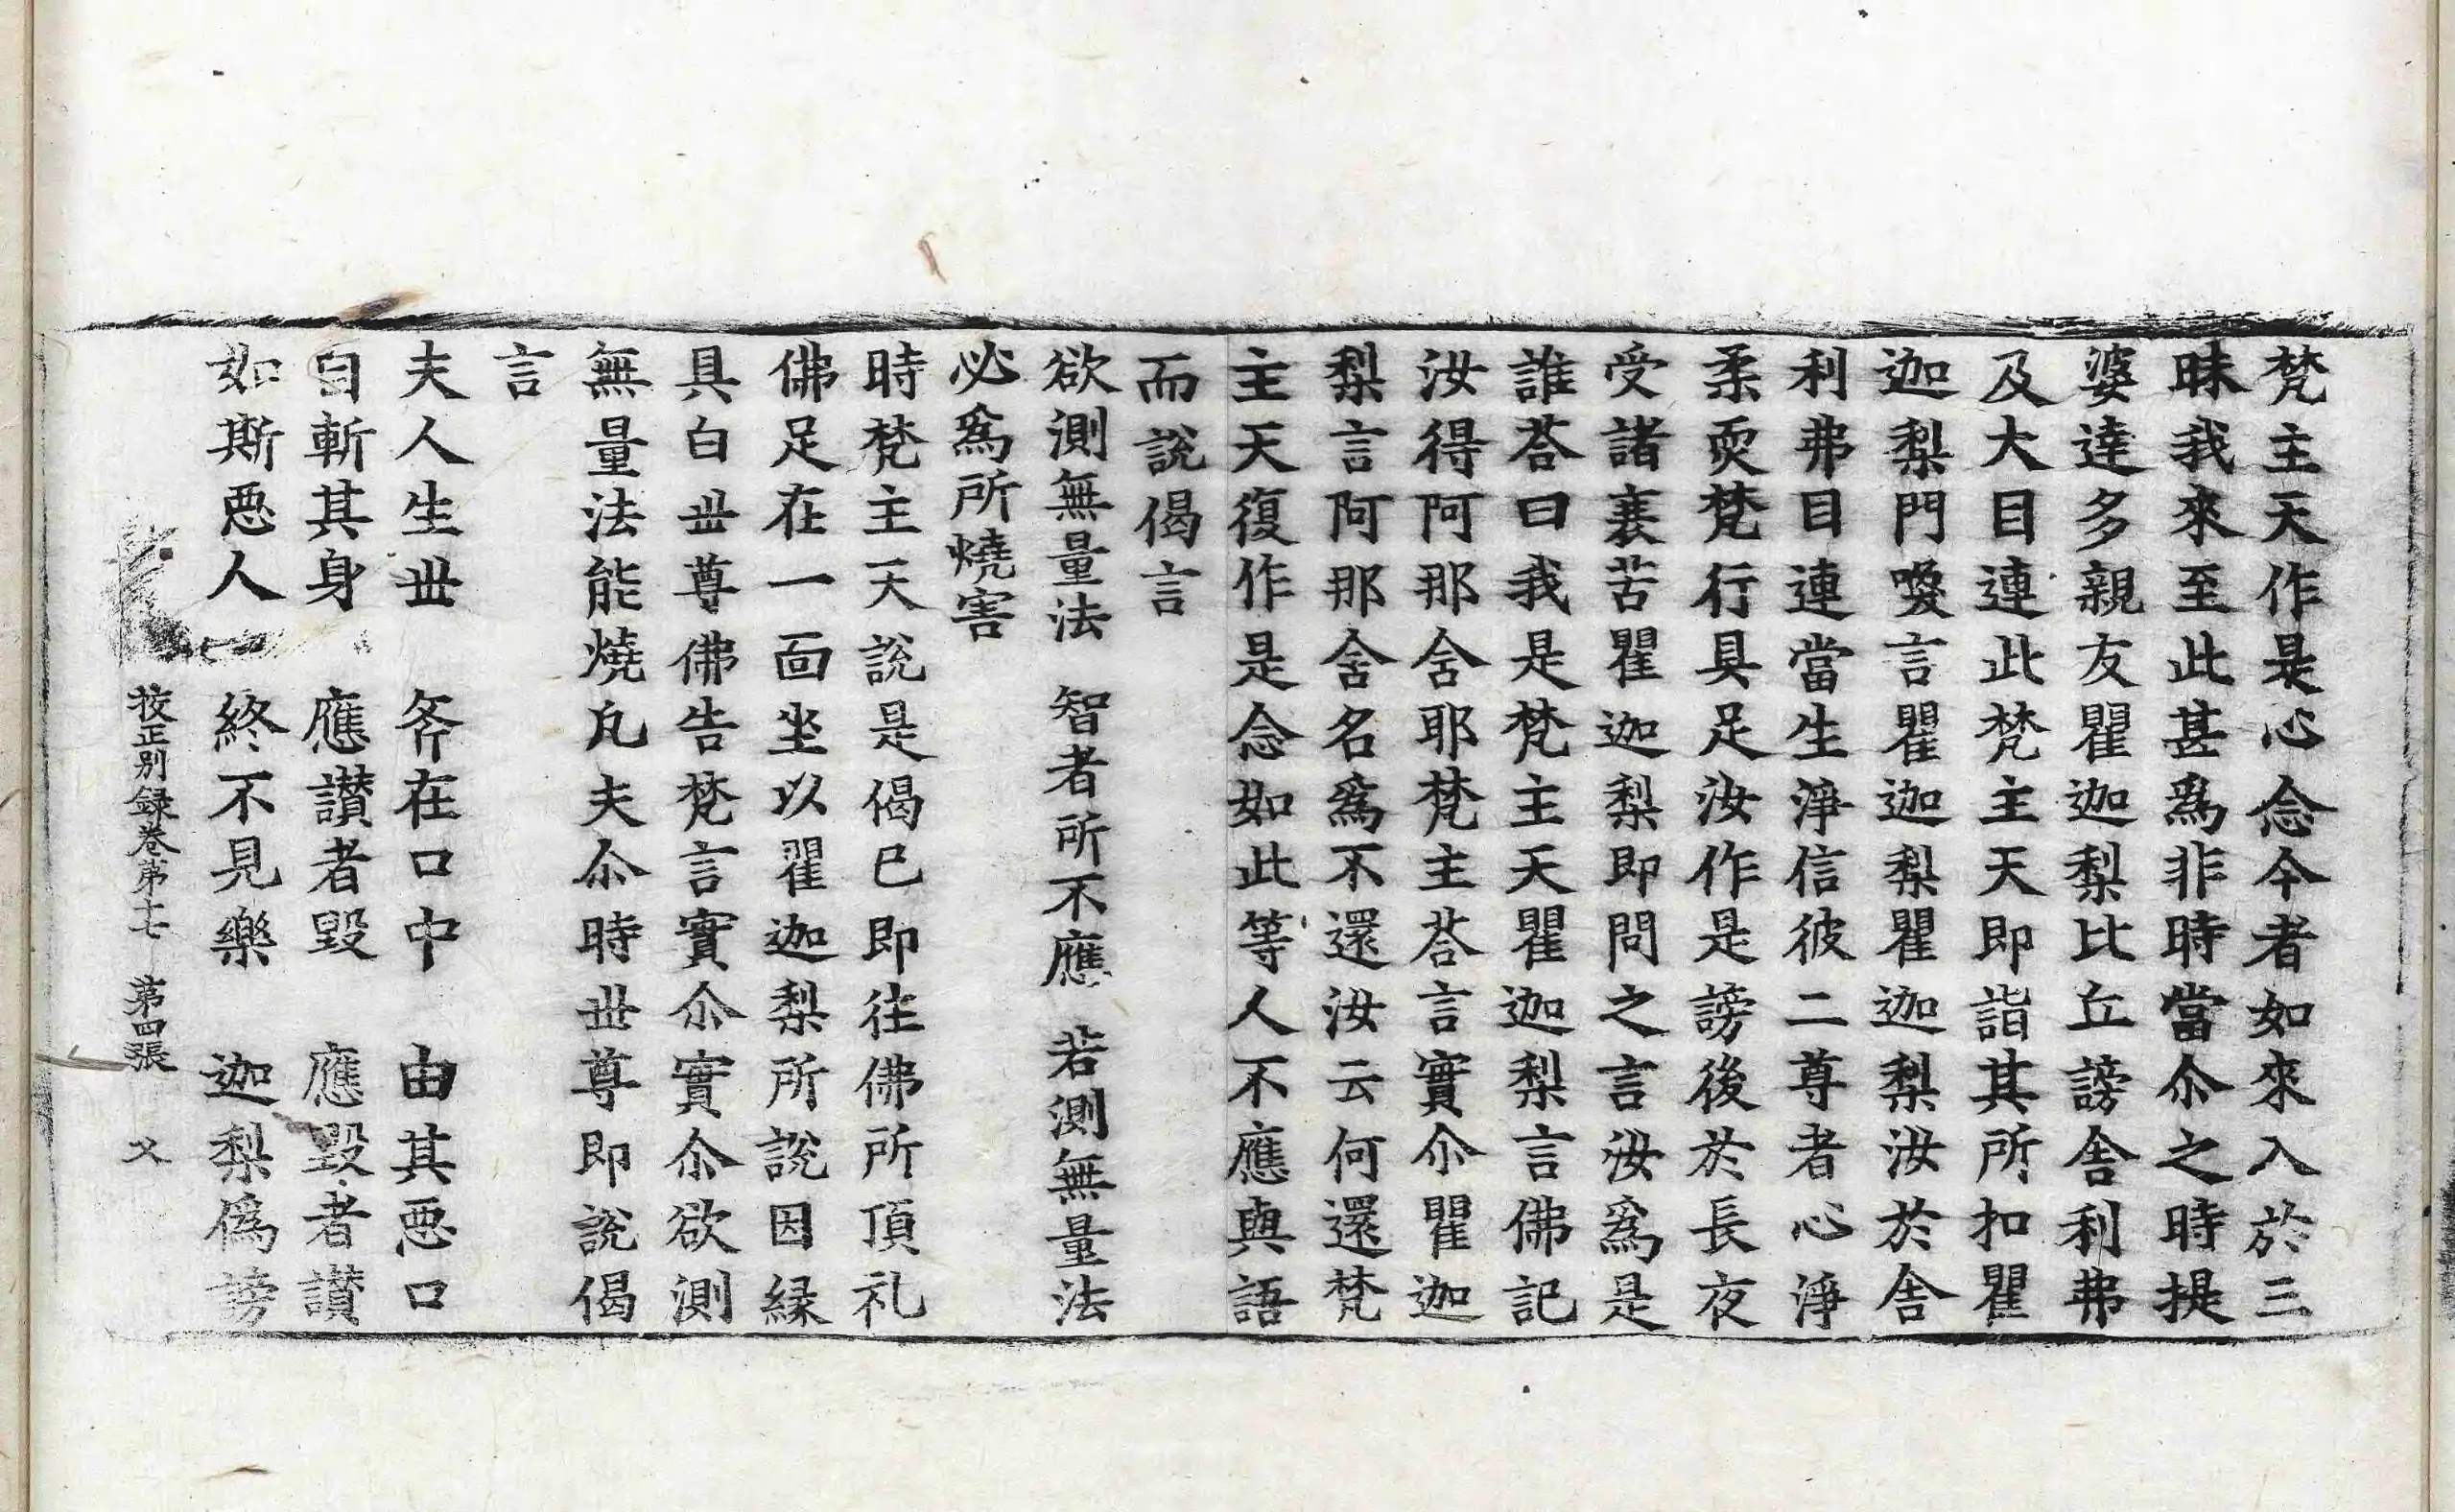 梵主天作是心念今者如來入於三
昧我來至此甚爲非時當尒之時提
婆達多親友瞿迦梨比丘謗舍利弗
及大目連此梵主天即詣其所扣瞿
迦梨門喚言瞿迦梨瞿迦梨汝於舍
利弗目連當生淨信彼二尊者心淨
柔耎梵行具足汝作是謗後於長夜
受諸衰苦瞿迦梨即問之言汝爲是
誰荅曰我是梵主天瞿迦梨言佛記
汝得阿那含耶梵主荅言實尒瞿迦
梨言阿那含名爲不還汝云何還梵
主天復作是念如此等人不應與語
而說偈言
欲測無量法　智者所不應　若測無量法
必爲所燒害
時梵主天說是偈已即往佛所頂礼
佛足在一面坐以瞿迦梨所說因縁
具白世尊佛告梵言實尒實尒欲測
無量法能燒凡夫尒時世尊即說偈
言
夫人生世　斧在口中　由其惡口
自斬其身　應讃者毀　應毀者讃
如斯惡人　終不見樂　迦梨僞謗
挍正別録卷第十七　第四張　乂